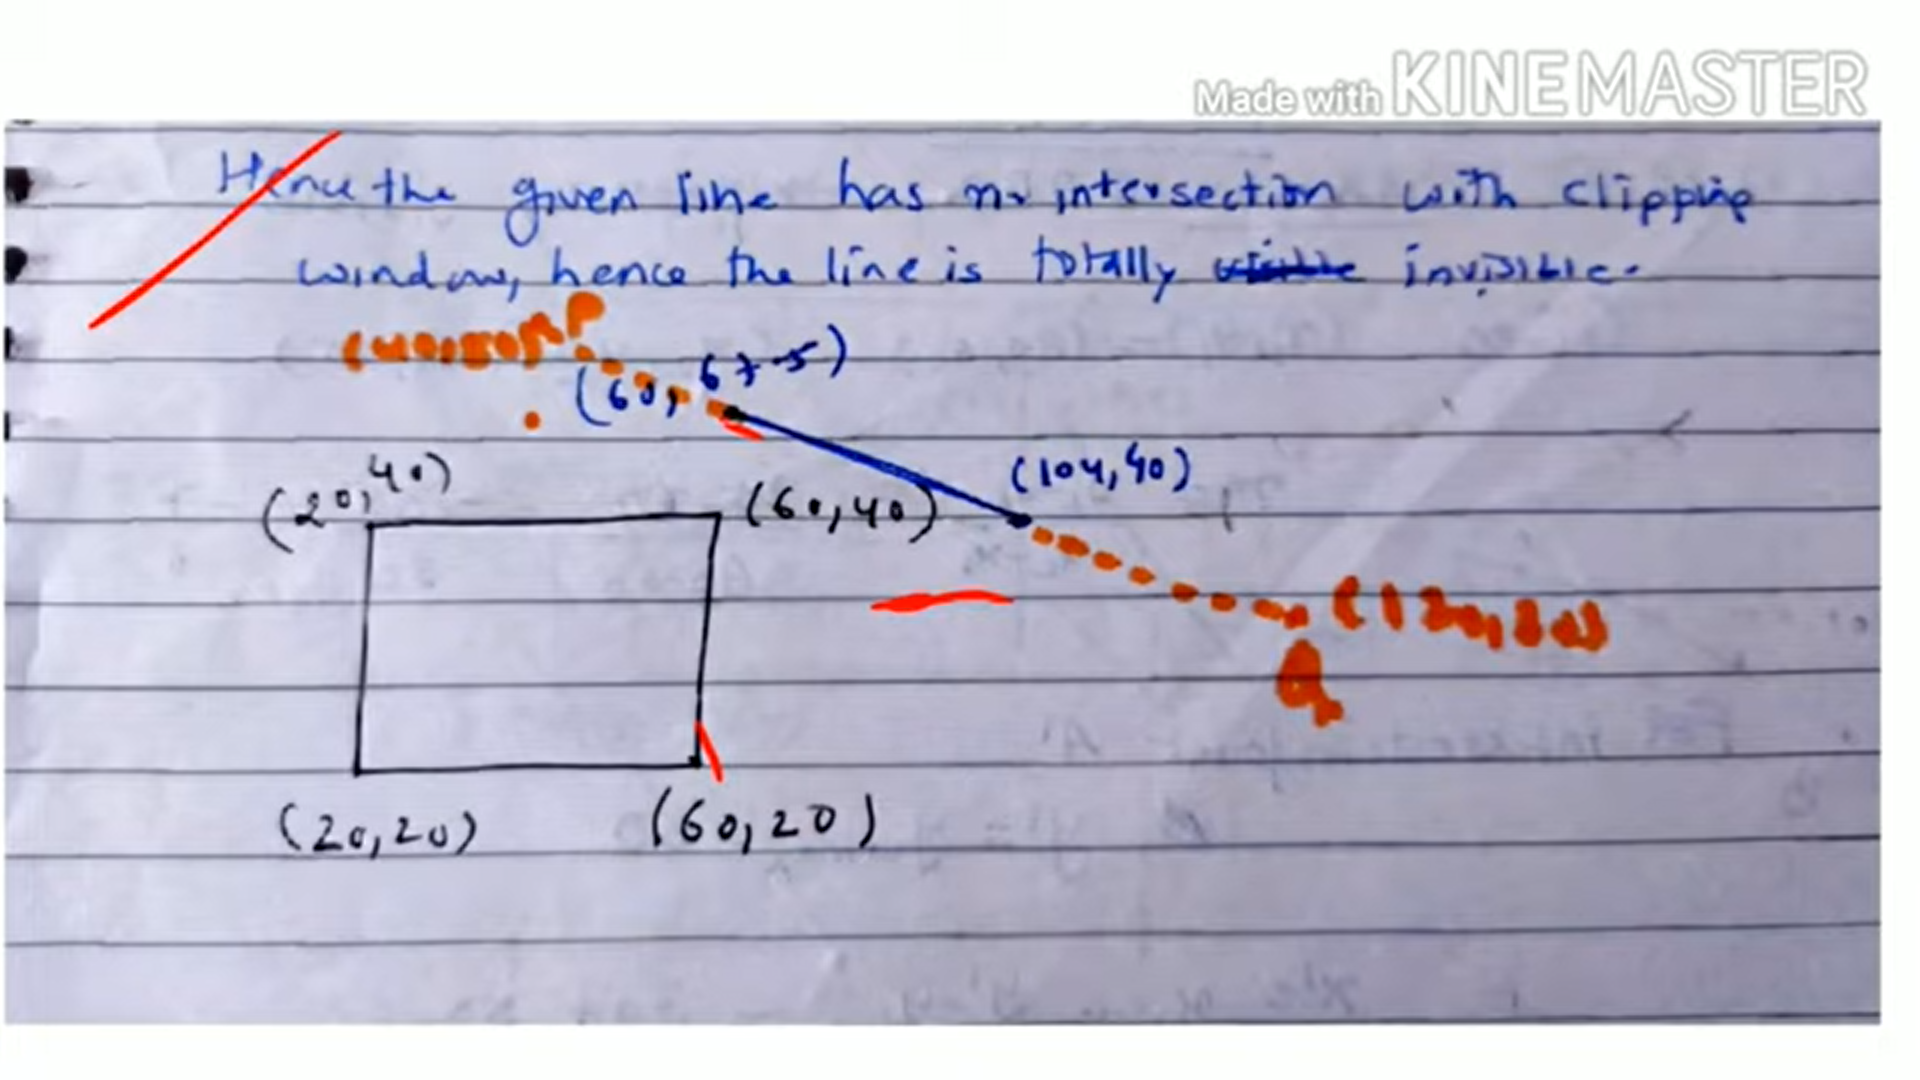 Made with KINEMASTER
Hence the given line has no intersection with clipping
window, hence the line is totally invisible.
P
(60, 67.5)
(20,40)
(60,40)
(104,40)
Q
(20,20)
(60,20)